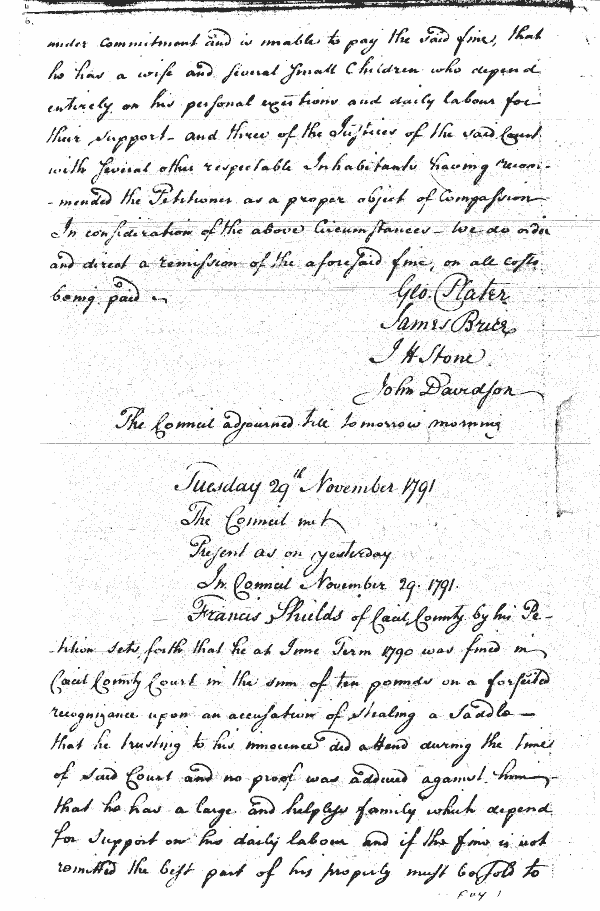 under commitment and is unable to pay the said fine, that
he has a wife and several small Children who depend
entirely on his personal exertions and daily labour for
their support – and three of the Justices of the said Court
with several other respectable Inhabitants having recom-
-mended the Petitioner as a proper object of Compassion
In consideration of the above Circumstances – We do order
and direct a remission of the aforesaid fine, on all costs
being paid –
Geo. Plater
James Brice
J H Stone
John Davidson
The Council adjourned till tomorrow morning
Tuesday 29th November 1791
The Council met
Present as on yesterday
In Council November 29. 1791.
Francis Shields of Cæcil County by his Pe-
-tition sets forth that he at June Term 1790 was fined in
Cæcil County Court in the sum of ten pounds on a forfeited
recognizance upon an accusation of stealing a Saddle –
that he trusting to his innocence did attend during the time
of said Court and no proof was adduced against him –
that he has a large and helpless family which depend
for Support on his daily labour and if the fine is not
remitted the best part of his property must be sold to
pay